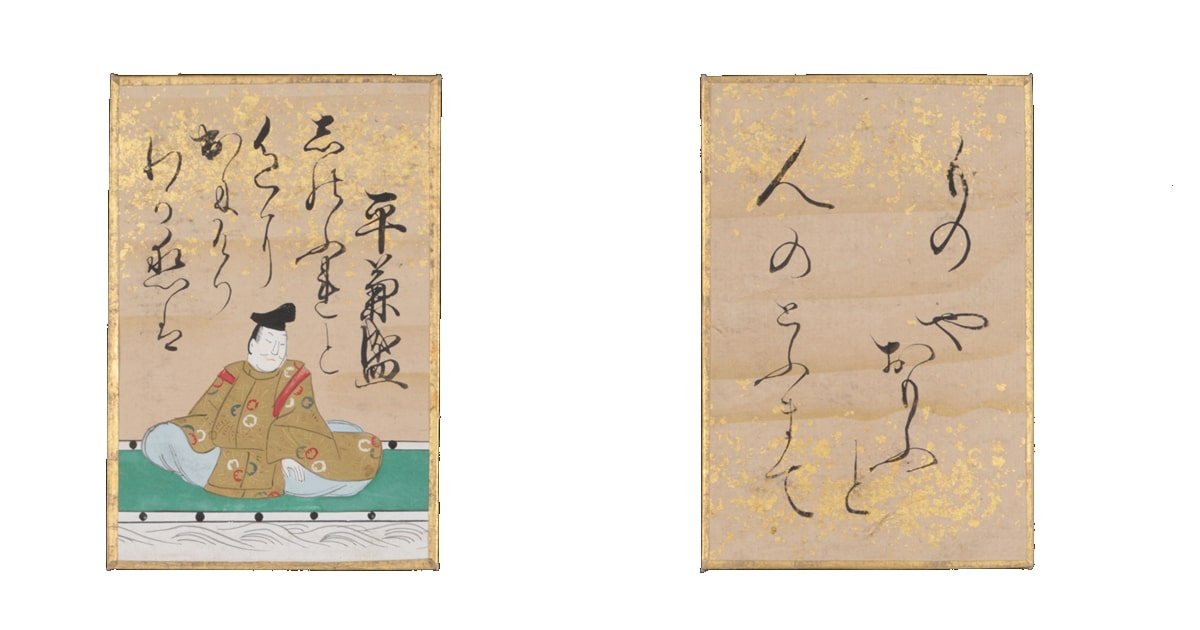 平兼盛
しのふれと
色に
出にけり
わか恋は
もの
や
おもふ
と
人のとふまて